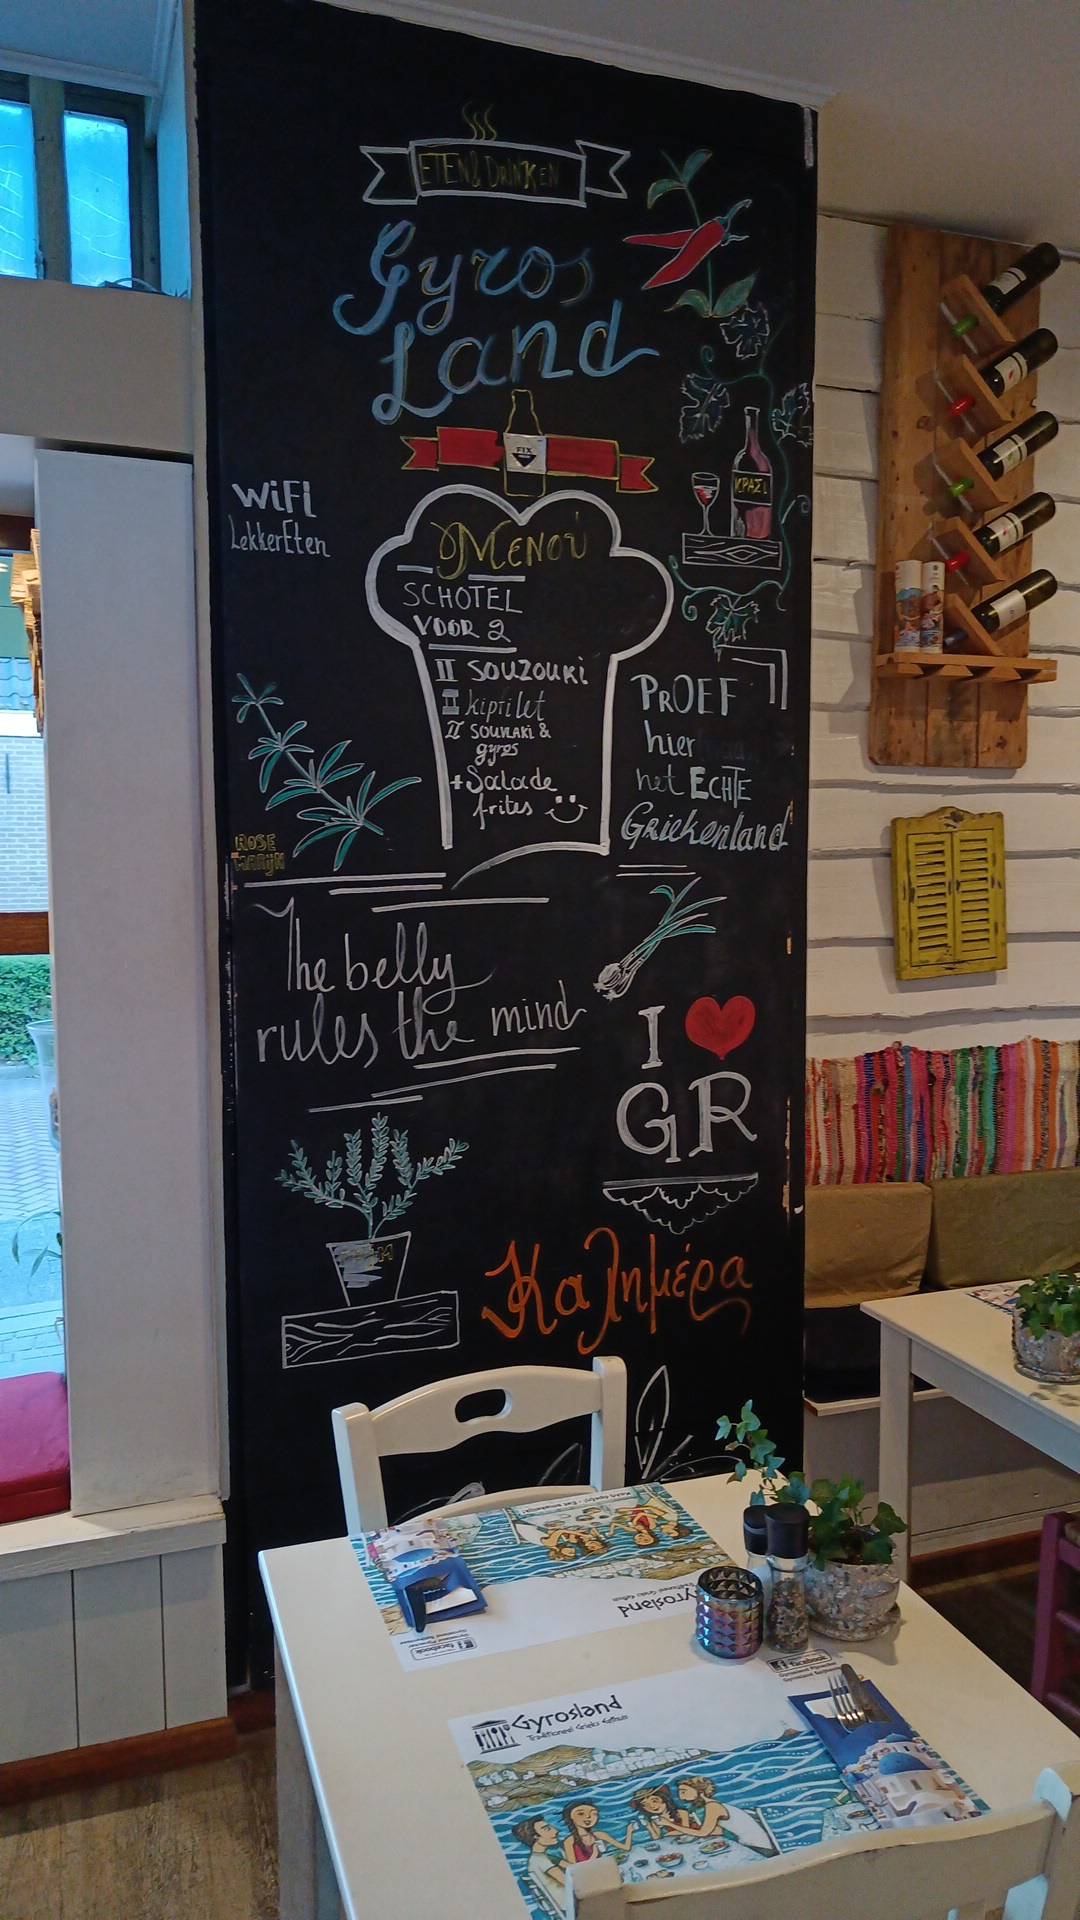 ETEN & DRINKEN
Gyros
Land
FIX
WiFI
LekkerEten
ΚΡΑΣΙ
MENOU
SCHOTEL
VOOR 2
II SOUZOUKI
II kipfilet
II SOUVLAKI &
gyros
+ Salade
frites
PROEF
hier
het ECHTE
Griekenland
ROSE
MARIJN
The belly
rules the mind
I ♥
GR
Καλημέρα
Gyrosland
Traditioneel Grieks Eethuis
facebook
Gyrosland
Traditioneel Grieks Eethuis
facebook